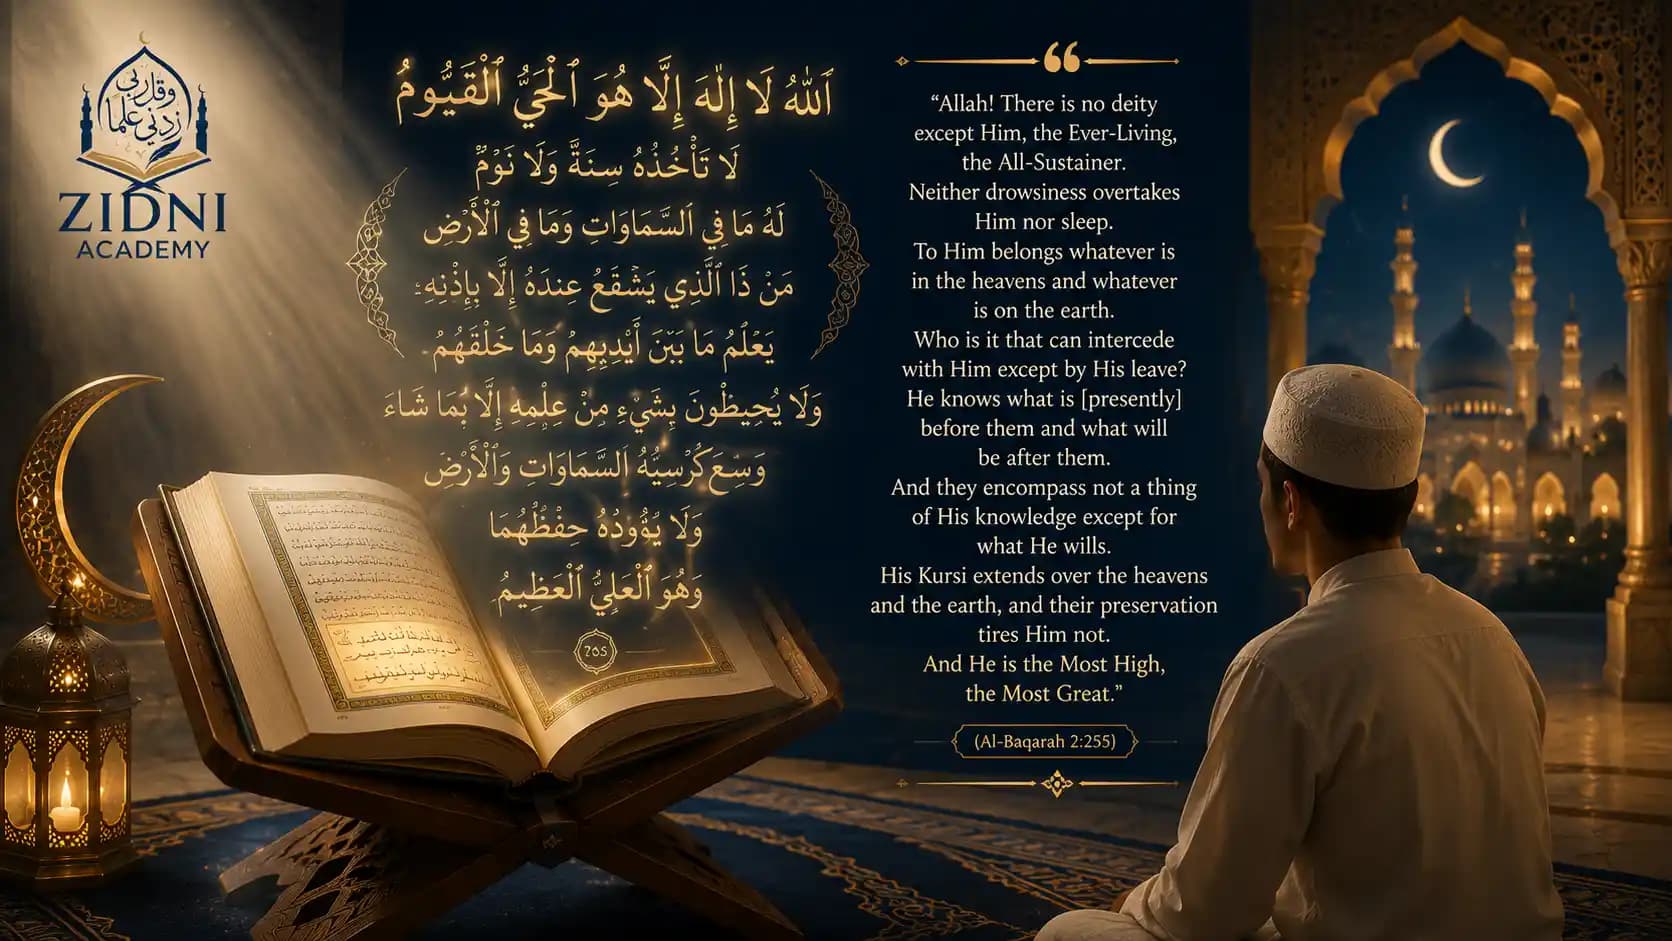 وقل ربي
زدني علما
ZIDNI
ACADEMY
ٱللَّهُ لَا إِلَٰهَ إِلَّا هُوَ ٱلْحَيُّ ٱلْقَيُّومُ
لَا تَأْخُذُهُ سِنَةٌ وَلَا نَوْمٌ
لَهُ مَا فِي ٱلسَّمَاوَاتِ وَمَا فِي ٱلْأَرْضِ
مَنْ ذَا ٱلَّذِي يَشْفَعُ عِندَهُ إِلَّا بِإِذْنِهِ
يَعْلَمُ مَا بَيْنَ أَيْدِيهِمْ وَمَا خَلْفَهُمْ
وَلَا يُحِيطُونَ بِشَيْءٍ مِنْ عِلْمِهِ إِلَّا بِمَا شَاءَ
وَسِعَ كُرْسِيُّهُ ٱلسَّمَاوَاتِ وَٱلْأَرْضَ
وَلَا يُؤُودُهُ حِفْظُهُمَا
وَهُوَ ٱلْعَلِيُّ ٱلْعَظِيمُ
“Allah! There is no deity
except Him, the Ever-Living,
the All-Sustainer.
Neither drowsiness overtakes
Him nor sleep.
To Him belongs whatever is
in the heavens and whatever
is on the earth.
Who is it that can intercede
with Him except by His leave?
He knows what is [presently]
before them and what will
be after them.
And they encompass not a thing
of His knowledge except for
what He wills.
His Kursi extends over the heavens
and the earth, and their preservation
tires Him not.
And He is the Most High,
the Most Great.”
(Al-Baqarah 2:255)